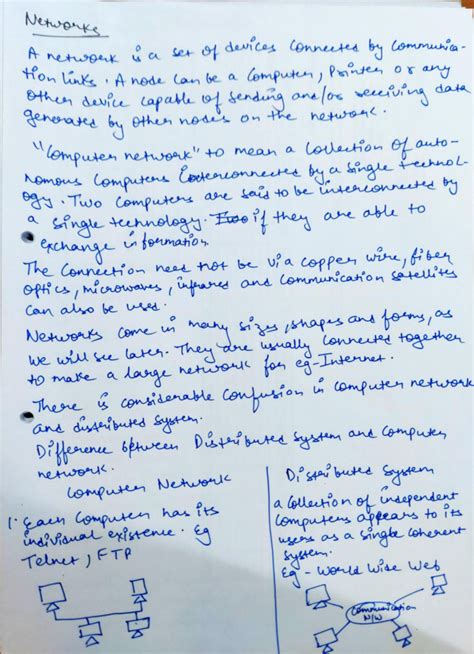 Networks
A network is a set of devices connected by communica-
tion links. A node can be a computer, printer or any
other device capable of sending and/or receiving data
generated by other nodes on the network.
"Computer network" to mean a collection of auto-
nomous computers interconnected by a single technol-
ogy. Two computers are said to be interconnected by
a single technology. if they are able to
exchange information
The connection need not be via copper wire, fiber
optics, microwaves, infrared and communication satellites
can also be used.
Networks come in many sizes, shapes and forms, as
we will see later. They are usually connected together
to make a large network for eg-Internet.
There is considerable confusion in computer network
and distributed system.
Difference between Distributed System and Computer
network.
Computer Network
1. Each computer has its
individual existence. Eg
Telnet, FTP
Distributed System
a collection of independent
computers appears to its
users as a single coherent
system.
Eg - World Wide Web
Communication
N/W